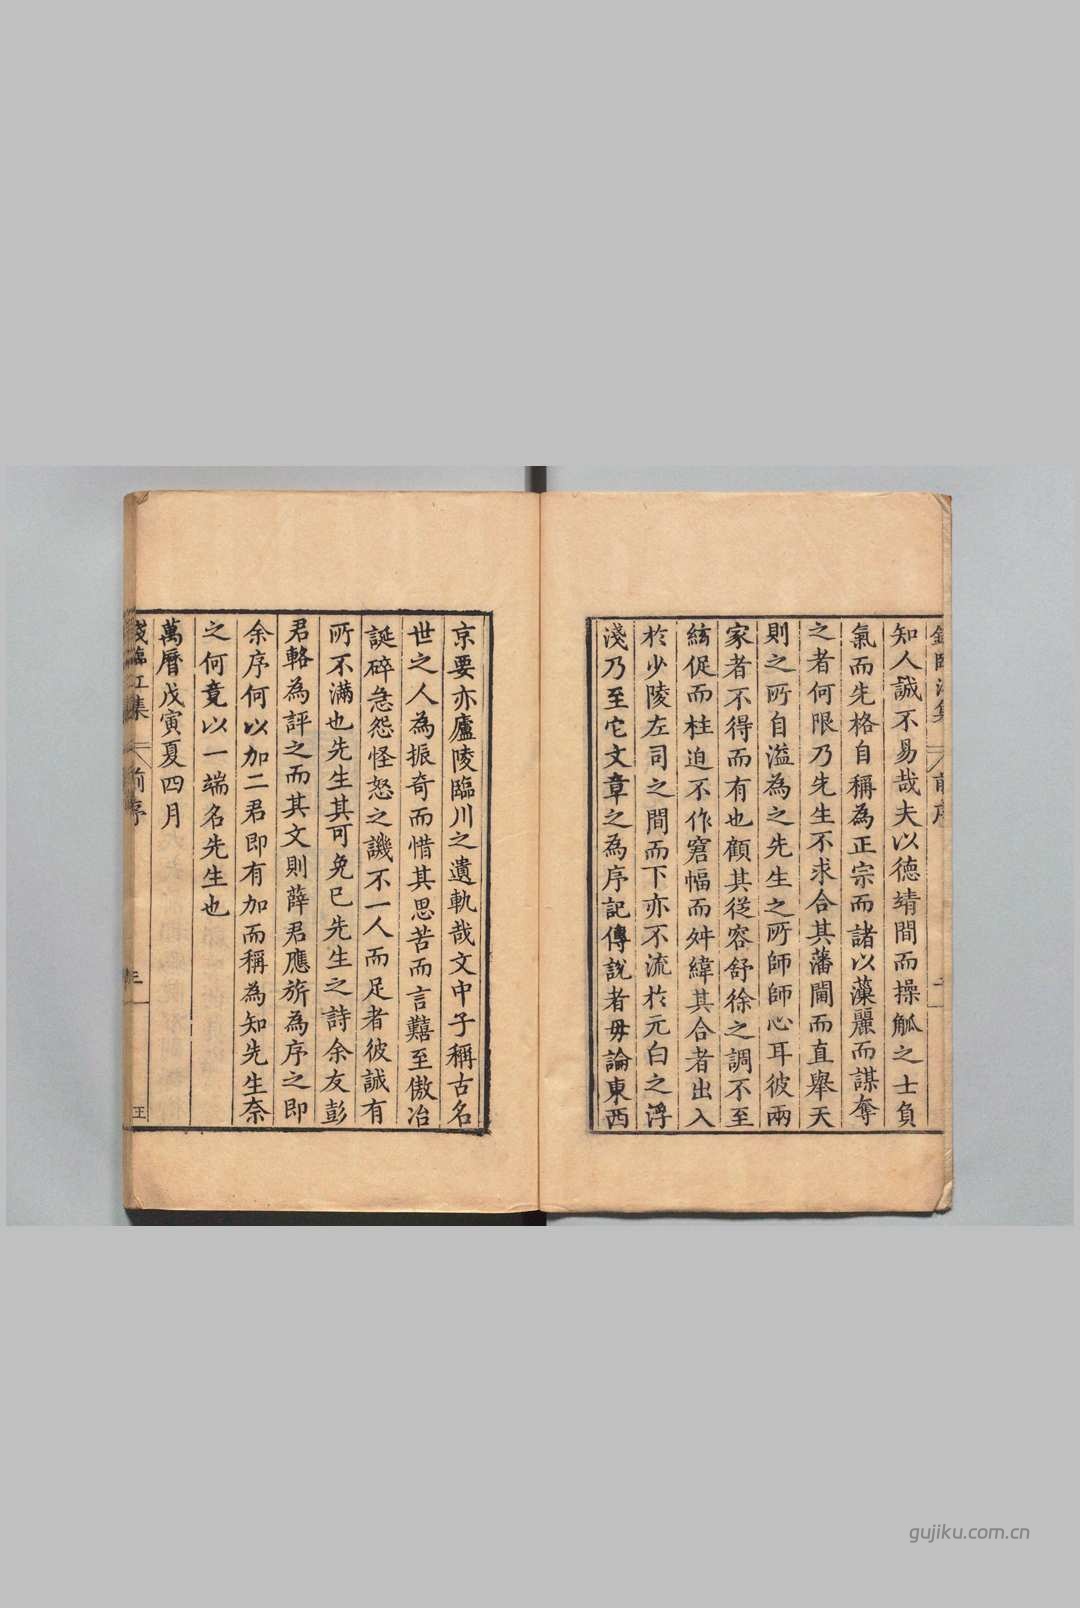 知人誠不易哉夫以德靖間而操觚之士負
氣而先格自稱為正宗而諸以藻麗而謀奪
之者何限乃先生不求合其藩閫而直舉天
則之所自溢為之先生之所師師心耳彼兩
家者不得而有也顧其從容舒徐之調不至
絃促而柱迫不作窘幅而舛緯其合者出入
於少陵左司之間而下亦不流於元白之浮
淺乃至它文章之為序記傳說者毋論東西
京要亦廬陵臨川之遺軌哉文中子稱古名
世之人為振奇而惜其思苦而言囏至傲冶
誕碎急怨怪怒之譏不一人而足者彼誠有
所不滿也先生其可免已先生之詩余友彭
君輅為評之而其文則薛君應旂為序之即
余序何以加二君即有加而稱為知先生奈
之何竟以一端名先生也
萬曆戊寅夏四月
錢臨江集 前序 三
gujiku.com.cn